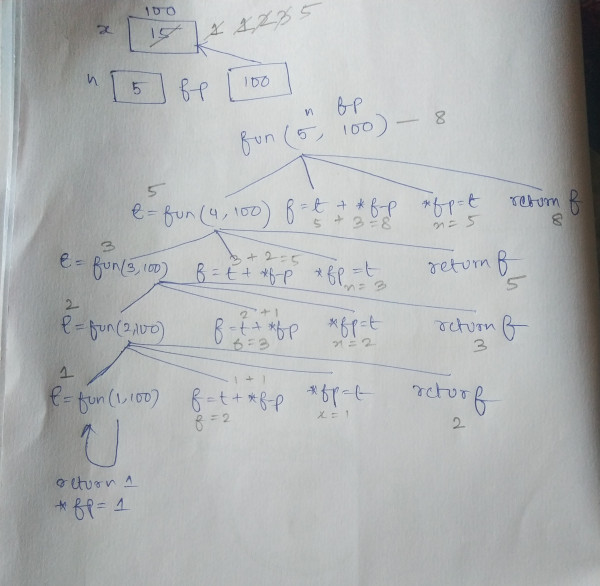 100
x 15 1 1 2 3 5
n 5 fp 100
n fp
fun (5, 100) — 8
5
t = fun(4,100) f = t + *fp *fp = t return f
5 + 3 = 8 x = 5 8
3 3 + 2 = 5
t = fun(3,100) f = t + *fp *fp = t return f
x = 3 5
2 2 + 1
t = fun(2,100) f = t + *fp *fp = t return f
f = 3 x = 2 3
1 1 + 1
t = fun(1,100) f = t + *fp *fp = t retur f
f = 2 x = 1 2
return 1
*fp = 1